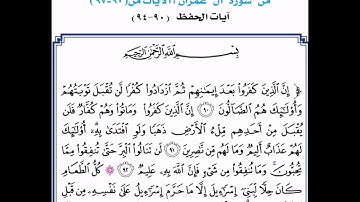 من سورة آل عمران الآيات من (٩٠-٩٧)
آيات الحفظ (٩٠-٩٤)
بِسْمِ اللَّهِ الرَّحْمَٰنِ الرَّحِيمِ
﴿ إِنَّ الَّذِينَ كَفَرُوا بَعْدَ إِيمَانِهِمْ ثُمَّ ازْدَادُوا كُفْرًا لَّن تُقْبَلَ تَوْبَتُهُمْ
وَأُولَٰئِكَ هُمُ الضَّالُّونَ ٩٠ إِنَّ الَّذِينَ كَفَرُوا وَمَاتُوا وَهُمْ كُفَّارٌ فَلَن
يُقْبَلَ مِنْ أَحَدِهِم مِّلْءُ الْأَرْضِ ذَهَبًا وَلَوِ افْتَدَىٰ بِهِ أُولَٰئِكَ
لَهُمْ عَذَابٌ أَلِيمٌ وَمَا لَهُم مِّن نَّاصِرِينَ ٩١ لَن تَنَالُوا الْبِرَّ حَتَّىٰ تُنفِقُوا مِمَّا
تُحِبُّونَ وَمَا تُنفِقُوا مِن شَيْءٍ فَإِنَّ اللَّهَ بِهِ عَلِيمٌ ٩٢ كُلُّ الطَّعَامِ
كَانَ حِلًّا لِّبَنِي إِسْرَائِيلَ إِلَّا مَا حَرَّمَ إِسْرَائِيلُ عَلَىٰ نَفْسِهِ مِن قَبْلِ